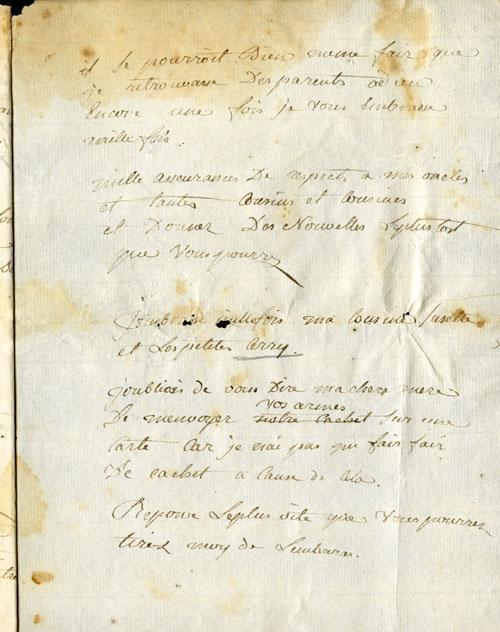 il se pourroit Bien meme fair que
je retrouvasse Des parents adieu
Encore une fois je vous Embrasse
mille fois
mille assurances De respects a mes oncles
et tantes Cousins et Cousines
et Donner Des Nouvelles Leplustost
que Vous pourrez
J'embrasse millefois ma Cousine Susette
et Les petites Crry
joubliois de vous Dire ma chere mere
De menvoyer notre cachet vos armes Sur une
Carte Car je nai pas pu fair fair
De cachet a Cause de Cela
Reponse Leplus vite que Vous pourrez
tirez moy de Lembaras